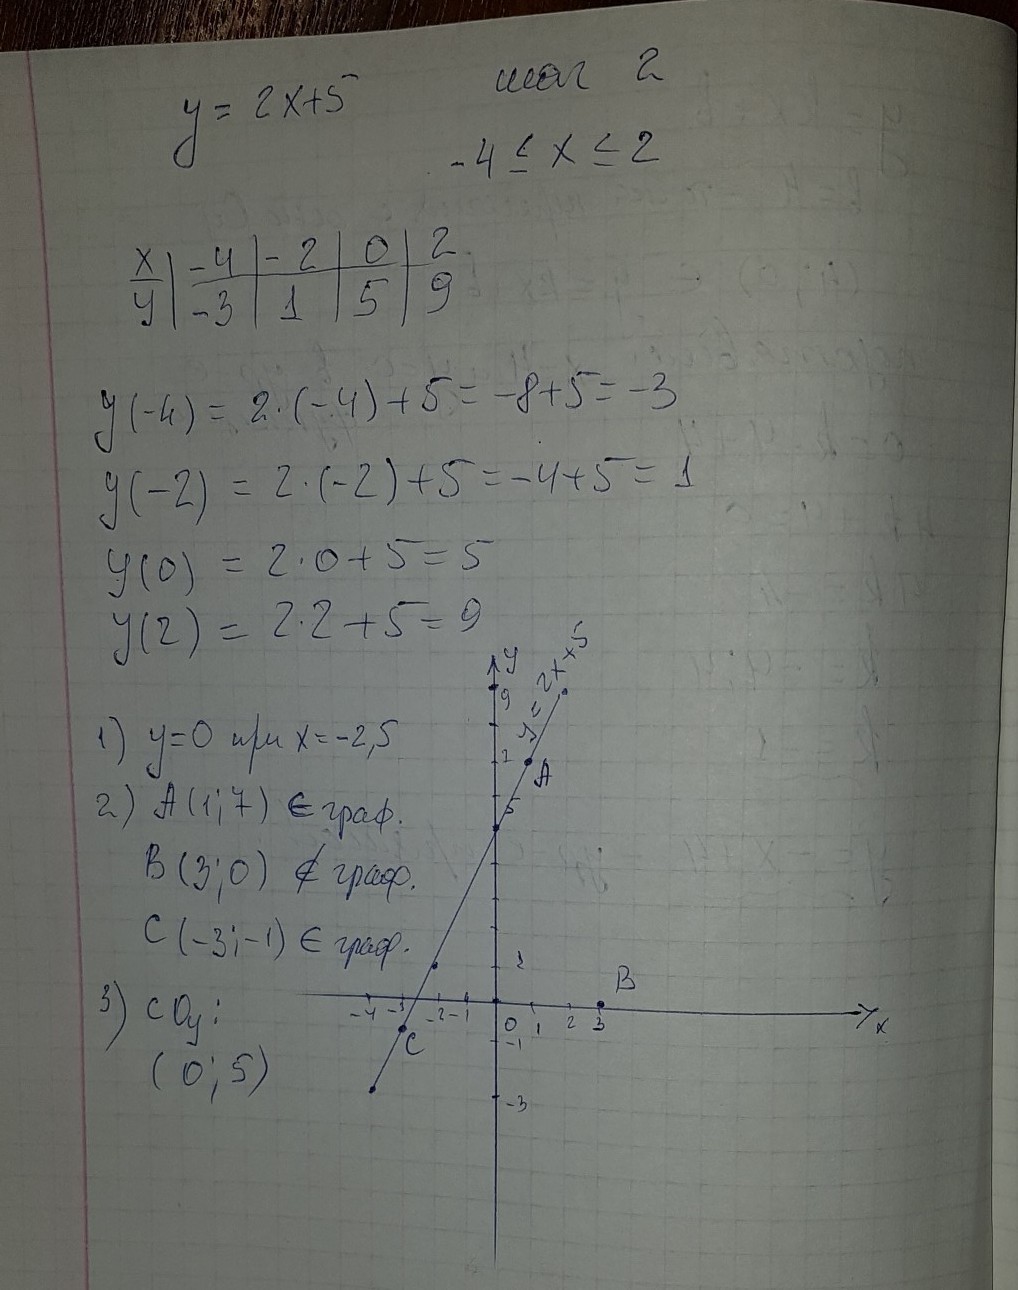 y = 2x+5 шаг 2
-4 ≤ x ≤ 2
x | -4 | -2 | 0 | 2
y | -3 | 1 | 5 | 9
y(-4) = 2·(-4)+5=-8+5=-3
y(-2) = 2·(-2)+5=-4+5=1
y(0) = 2·0+5=5
y(2) = 2·2+5=9
1) y=0 при x=-2,5
2) A(1;7) ∈ граф.
B(3;0) ∉ граф.
C(-3;-1) ∈ граф.
3) с Oy:
(0;5)
y
9
y = 2x+5
A
5
1
B
-4 -3 -2 -1 0 1 2 3 x
C
-1
-3